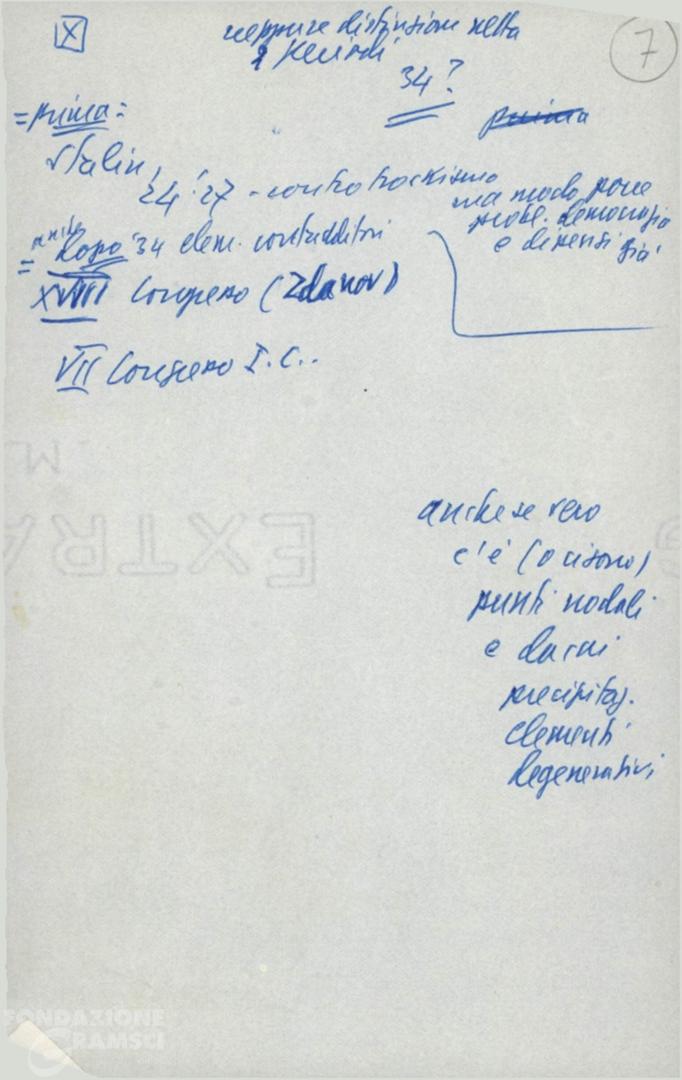 X
neppure distinzione netta
2 periodi
7
34?
= prima =
prima
Stalin,
24-'27 - contro trockismo
ma modo pone
probl. democrazia
e dissensi già
anche
= dopo '34 elem. contradditori
XVIII Congresso (Zdanov)
VII Congresso I.C..
anche se vero
c'è (o ci sono)
punti nodali
e da cui
precipitaz.
elementi
degenerativi
EXTRA
FONDAZIONE
GRAMSCI